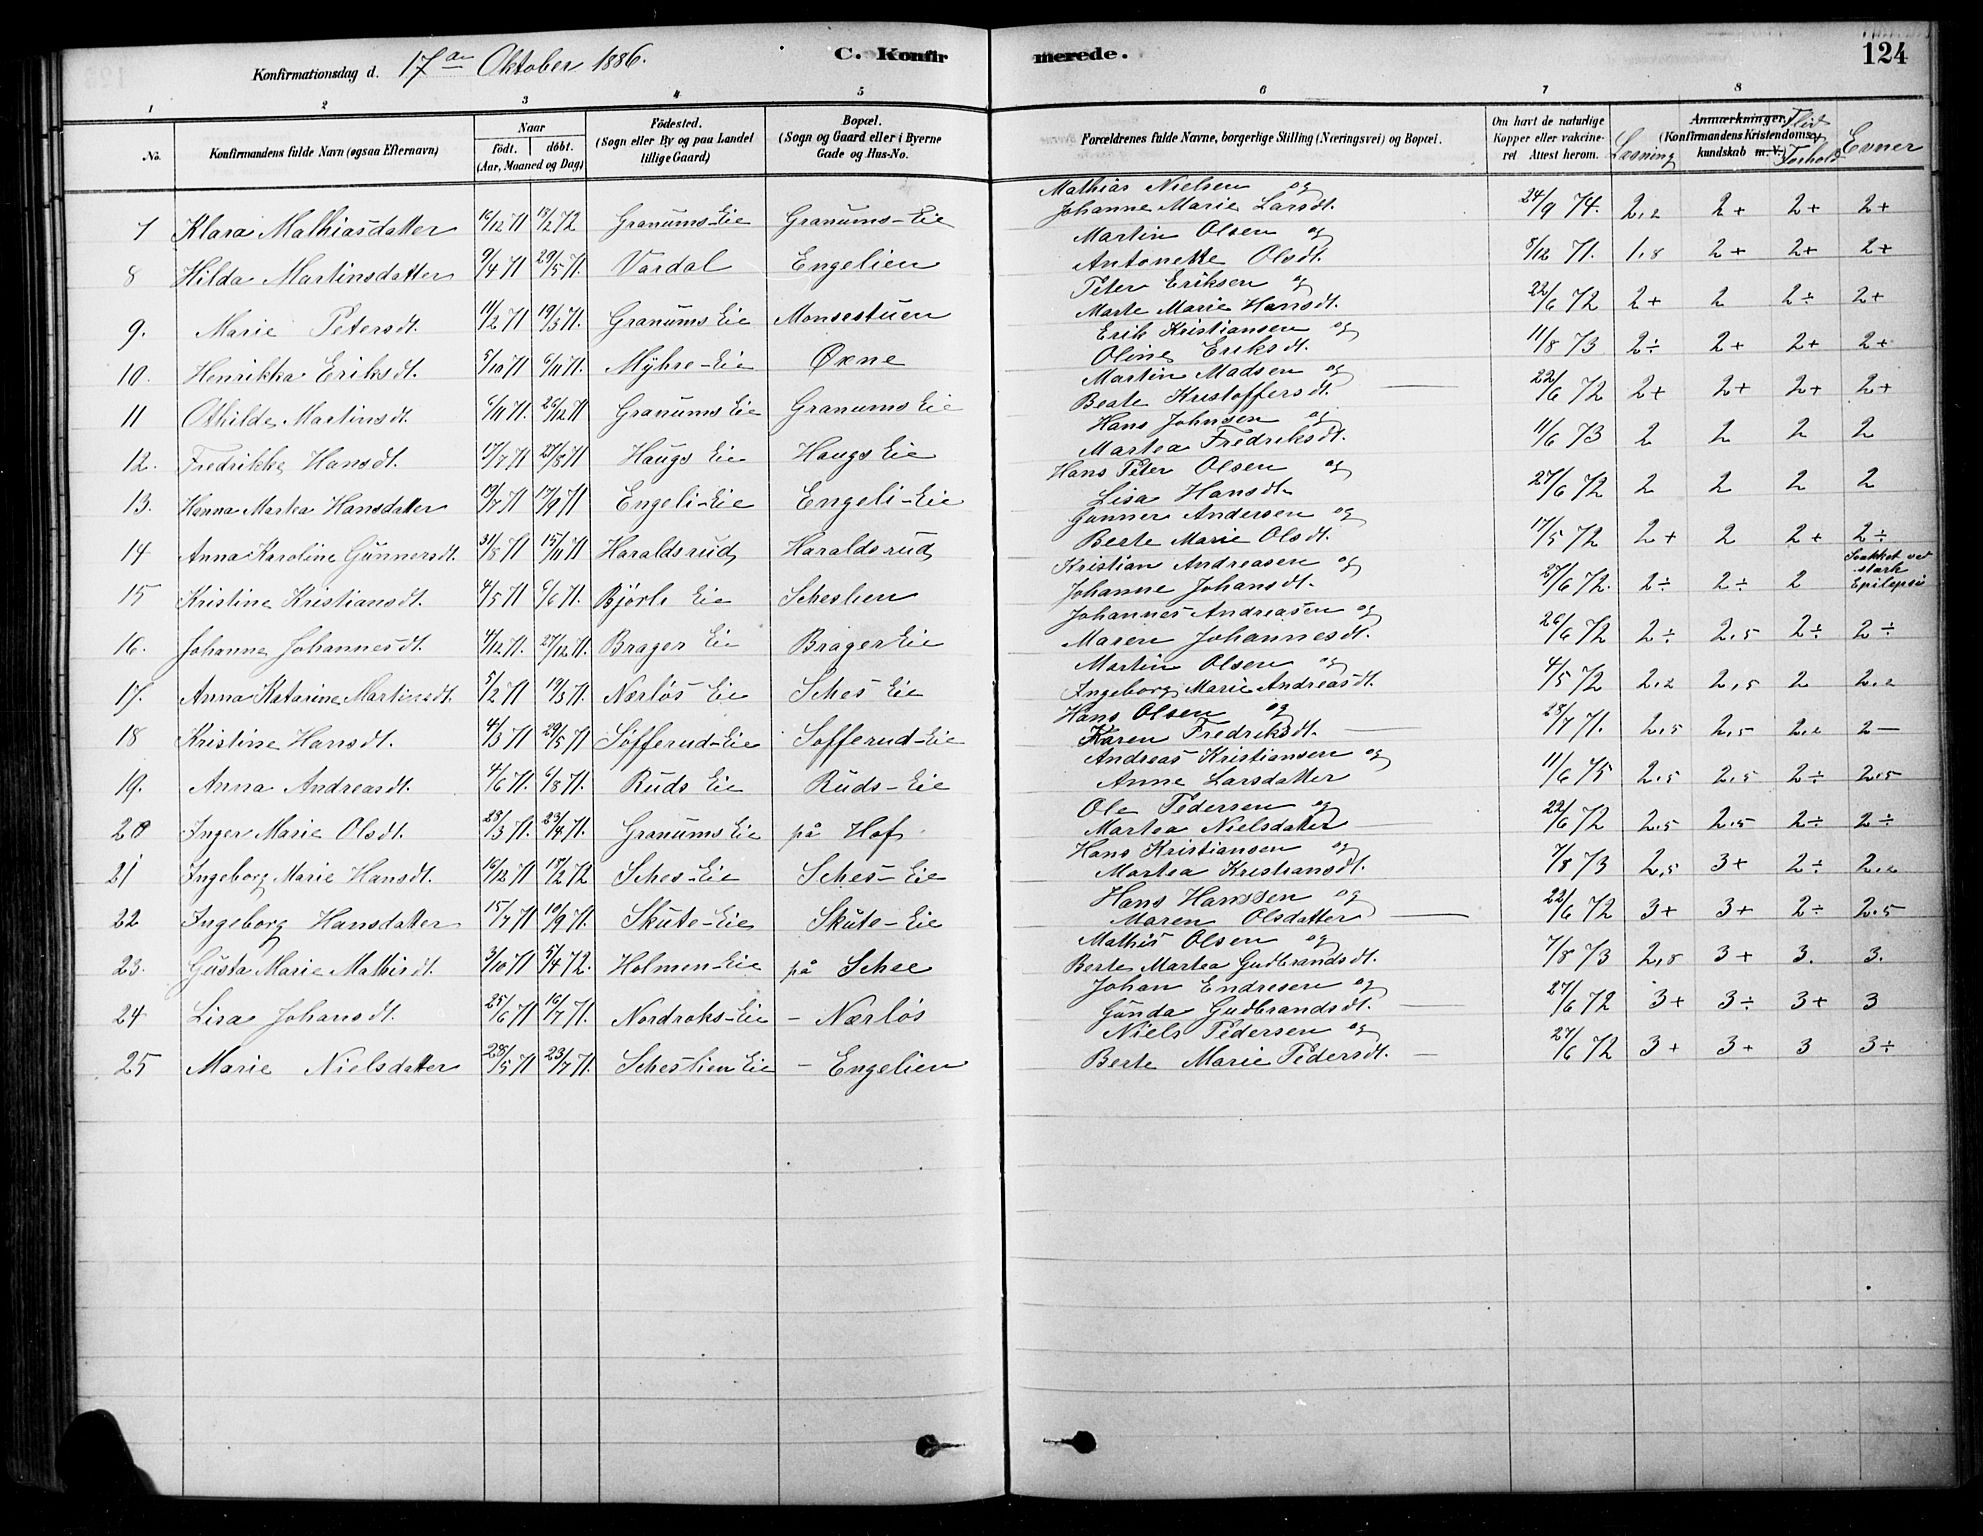 Konfirmationsdag d. 17de Oktober 1886.
C. Konfirmerede.
124
1 2 3 4 5 6 7 8
No.
Konfirmandens fulde Navn (ogsaa Efternavn)
Naar
födt. döbt.
(Aar, Maaned og Dag)
Födested.
(Sogn eller By og paa Landet
tillige Gaard)
Bopæl.
(Sogn og Gaard eller i Byerne
Gade og Hus-No.
Forældrenes fulde Navne, borgerlige Stilling (Næringsvei) og Bopæl.
Om havt de naturlige
Kopper eller vakcine-
ret Attest herom.
Anmærkninger,
(Konfirmandens Kristendoms-
kundskab m. V.)
Læsning
Flid og Forhold
Evner
7 Klara Mathiasdatter 16/12 71 17/2 72 Granums-Eie Granums-Eie Mathias Nielsen og Johanne Marie Larsdt. 24/9 74. 2,2 2+ 2+ 2+
8 Hilda Martinsdatter 9/4 71 29/5 71. Vardal Engelien Martin Olsen og Antonette Olsdt. 8/12 71. 1,8 2+ 2+ 2+
9. Marie Petersdt. 11/2 71 19/3 71. Granums Eie Monsestuen Peter Eriksen og Marte Marie Hansdt. 22/6 72 2+ 2 2÷ 2+
10. Henrikka Eriksdt. 5/10 71 6/11 71. Myhre-Eie Øxne Erik Kristiansen og Oline Eriksdt. 11/8 73 2÷ 2+ 2+ 2+
11 Othilde Martinsdt. 6/11 71. 26/12 71 Granums Eie Granums Eie Martin Madsen og Beate Kristoffersdt. 22/6 72 2+ 2+ 2+ 2+
12. Fredrikke Hansdt. 17/7 71 27/8 71 Haugs Eie Haugs Eie Hans Johnsen og Martea Fredriksdt. 11/6 73 2 2 2 2
13. Hanna Martea Hansdatter 19/7 71 17/9 71 Engeli-Eie Engeli-Eie Hans Peter Olsen og Lisa Hansdt. 27/6 72 2 2 2 2
14 Anna Karoline Gunnersdt. 31/8 71 15/11 71 Haraldsrud Haraldsrud Gunner Andersen og Berte Marie Olsdt. 17/5 72 2+ 2 2+ 2÷
15 Kristine Kristiansdt. 4/5 71 6/6 71. Björls Eie Scheslien Kristian Andreasen og Johanne Johansdt. 27/6 72. 2÷ 2÷ 2 Svækket ved stærk Epilepsi
16. Johanne Johannesdt. 4/12 71. 27/12 71. Brager Eie Brager Eie Johannes Andreasen og Maren Johannesdt. 26/6 72 2÷ 2,5 2÷ 2÷
17. Anna Katarine Martinsdt. 5/2 71 19/3 71. Nærlös Eie Sches Eie Martin Olsen og Ingeborg Marie Andreasdt. 4/5 72 2,2 2,5 2 2,2
18 Kristine Hansdt. 4/3 71 29/5 71 Söfferud-Eie Sofferud-Eie Hans Olsen og Karen Fredriksdt. 28/7 71. 2,5 2,5 2,2 2—
19. Anna Andreasdt. 4/6 71. 6/8 71. Ruds Eie Ruds-Eie Andreas Kristiansen og Anne Larsdatter 11/6 75 2,5 2,5 2÷ 2,5
20 Inger Marie Olsdt. 23/3 71. 23/4 71. Granums Eie på Hof Ole Pedersen og Martea Nielsdatter 22/6 72 2,5 2,5 2÷ 2÷
21 Ingeborg Marie Hansdt. 16/12 71 17/2 72 Sches-Eie Sches-Eie Hans Kristiansen og Martea Kristiansdt. 7/8 73 2,5 3+ 2÷ 2,2
22 Ingeborg Hansdatter 15/7 71 10/9 71. Skute-Eie Skute-Eie Hans Hanssen og Maren Olsdatter 22/6 72 3+ 3+ 2÷ 2,5
23. Gusta Marie Mathisdt. 3/10 71 5/4 72. Holmen-Eie på Schee Mathis Olsen og Berte Martea Gudbrandsdt. 7/8 73 2,8 3+ 3. 3.
24 Lisa Johansdt. 25/6 71 16/7 71. Nordraks-Eie – Nærlös Johan Endresen og Gunda Gudbrandsdt. 27/6 72 3+ 3÷ 3+ 3
25 Marie Nielsdatter 28/5 71 23/7 71. Scheslien Eie – Engelien Niels Pedersen og Berte Marie Pedersdt. 27/6 72 3+ 3+ 3 3÷